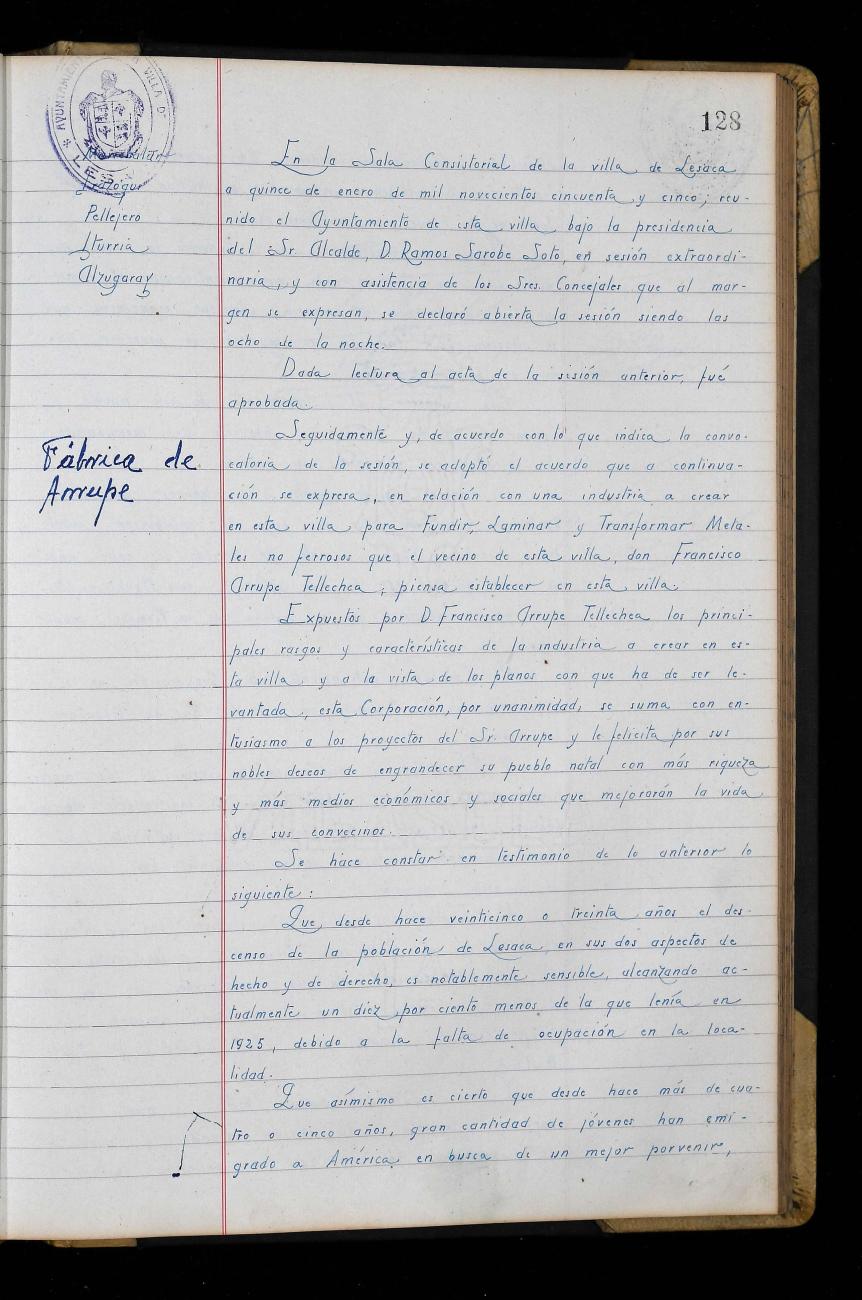 128
AYUNTAMIENTO VILLA D
LES
Pellejero
Iturria
Alzugaray
Fábrica de
Arrupe
En la Sala Consistorial de la villa de Lesaca
a quince de enero de mil novecientos cincuenta y cinco; reu-
nido el Ayuntamiento de esta villa bajo la presidencia
del Sr. Alcalde, D. Ramos Sarobe Soto, en sesión extraordi-
naria, y con asistencia de los Sres. Concejales que al mar-
gen se expresan, se declaró abierta la sesión siendo las
ocho de la noche.
Dada lectura al acta de la sisión anterior, fué
aprobada.
Seguidamente y, de acuerdo con lo que indica la convo-
catoria de la sesión, se adoptó el acuerdo que a continua-
ción se expresa, en relación con una industria a crear
en esta villa para Fundir, Laminar y Transformar Meta-
les no ferrosos que el vecino de esta villa, don Francisco
Arrupe Tellechea, piensa establecer en esta villa.
Expuestos por D. Francisco Arrupe Tellechea los princi-
pales rasgos y características de la industria a crear en es-
ta villa y a la vista de los planos con que ha de ser le-
vantada, esta Corporación, por unanimidad, se suma con en-
tusiasmo a los proyectos del Sr. Arrupe y le felicita por sus
nobles deseos de engrandecer su pueblo natal con más riqueza
y más medios económicos y sociales que mejorarán la vida
de sus convecinos.
Se hace constar en testimonio de lo anterior lo
siguiente:
Que, desde hace veinticinco o treinta años el des-
censo de la población de Lesaca en sus dos aspectos de
hecho y de derecho, es notablemente sensible, alcanzando ac-
tualmente un diez por ciento menos de la que tenía en
1925, debido a la falta de ocupación en la loca-
lidad.
Que asímismo es cierto que desde hace más de cua-
tro o cinco años, gran cantidad de jóvenes han emi-
grado a América en busca de un mejor porvenir,